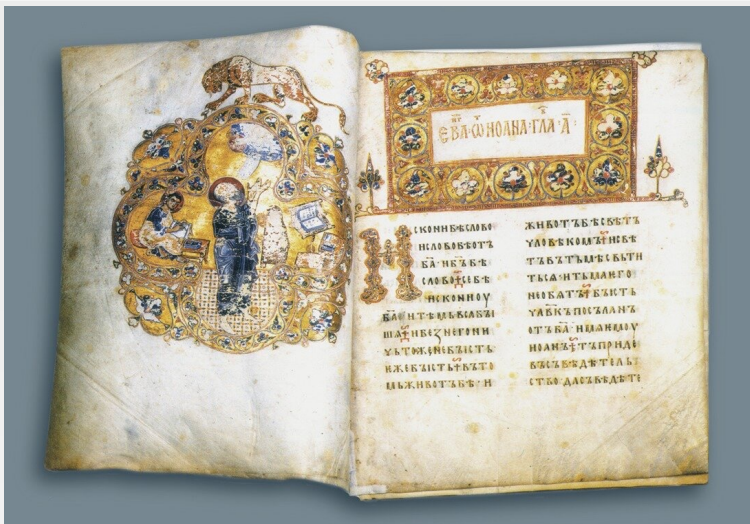 ЕВА·Ѿ ИОАНА·ГЛА·А҃:
ИСКОНИ БѢ СЛОВО
И СЛОВО БѢ ОТЪ
БА҃· И БЪ҃ БѢ
СЛОВО СЕ БѢ
ИСКОНИ ОУ
БА҃ И ТѢМЬ ВЬСА БЫ
ША И БЕЗ НЕГО НИ
ЧЬТОЖЕ НЕ БЫСТЬ
ИЖЕ БЫСТЬ ВЪ ТО
МЬ ЖИВОТЪ БѢ· И
ЖИВОТЪ БѢ СВѢТЪ
ЧЛОВѢКОМЪ И СВѢ
ТЪ ВЪ ТЬМѢ СВЬТИ
ТЬСѦ· И ТЬМА ѤГО
НЕ ОБѦТЪ БЫСТЬ
ЧЛ҃ВКЪ ПОСЪЛАНЪ
ОТЪ БА҃· ИМѦ ѤМОУ
ИОАНЪ ТЪ ПРИДЕ
ВЪ СЪВѢДѢТЕЛЬ
СТВО ДА СЪВѢДѢТЕ